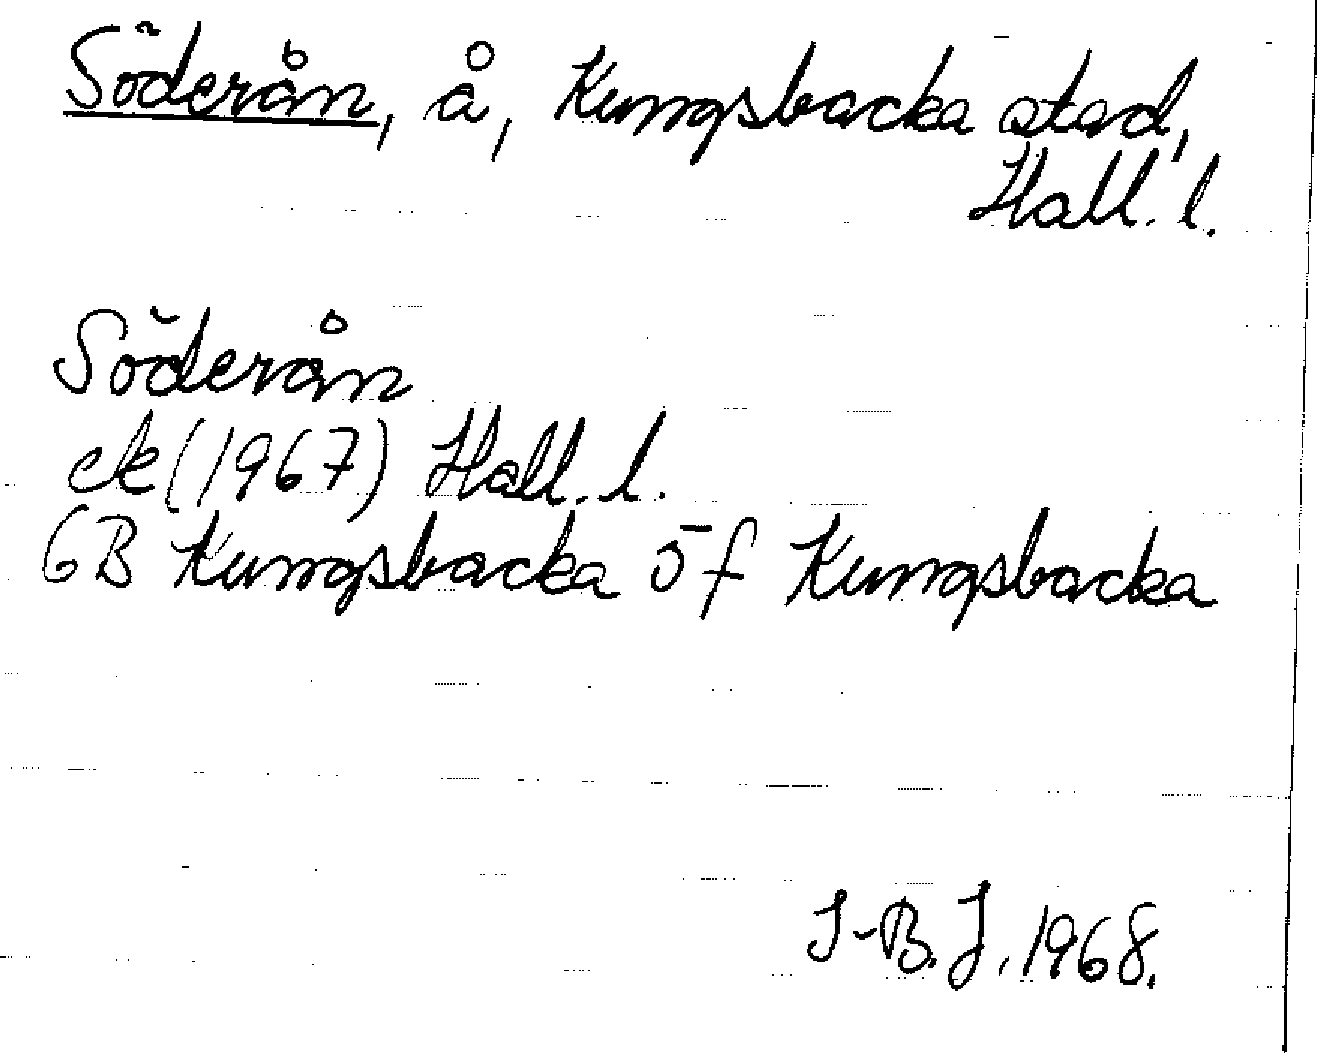 Söderån, å, Kungsbacka stad,
Hall. l.
Söderån
ek (1967) Hall. l.
6B Kungsbacka 5f Kungsbacka
I-B. J. 1968.